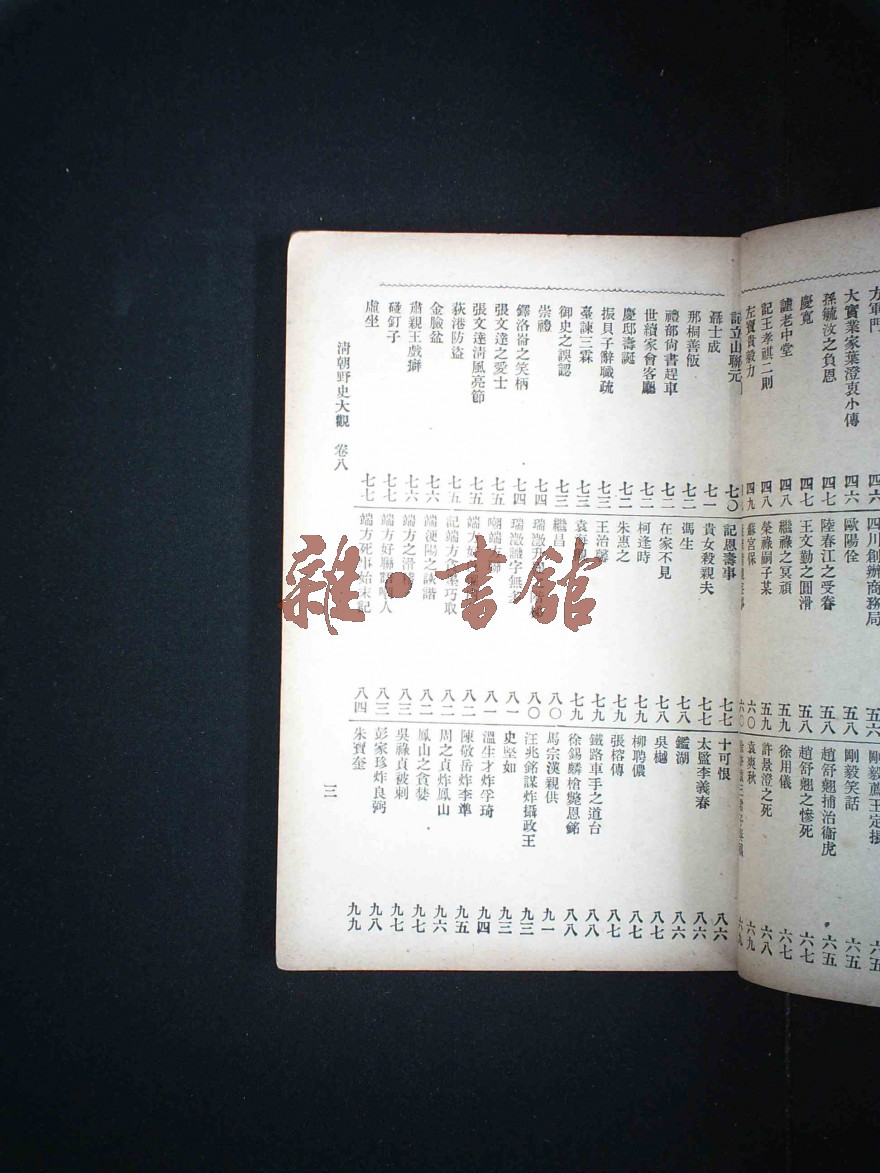 方軍門 四六
大實業家葉澄衷小傳 四六
孫毓汶之負恩 四七
慶寬 四七
謔老中堂 四八
記王孝祺二則 四八
左寶貴毅力 四九
四川創辦商務局 五六
歐陽佺 五八
陸春江之受眷 五八
王文勤之圓滑 五八
繼祿之冥頑 五九
榮祿嗣子某 五九
蘇宮保 六〇
六〇
剛毅薦王定
剛毅笑話 六五
趙舒翹捕治衞虎 六五
趙舒翹之慘死 六七
徐用儀 六七
許景澄之死 六八
袁爽秋 六九
六九
記立山聯元 七〇
聶士成 七一
那桐善飯 七二
禮部尚書趕車 七二
世續家會客廳 七二
慶邸壽誕 七二
振貝子辭職疏 七三
臺諫三霖 七三
御史之誤認 七三
崇禮 七四
鐸洛崙之笑柄 七四
張文達之愛士 七五
張文達清風亮節 七五
荻港防盜 七五
金臉盆 七六
肅親王戲獅 七六
碰釘子 七七
虛坐 七七
記恩壽事 七七
貴女殺親夫 七七
馮生 七八
在家不見 七八
柯逢時 七九
朱惠之 七九
王治馨 七九
袁 七九
繼昌 八〇
瑞澂升 八〇
瑞澂識字無多 八一
嘲端方聯 八一
端方好 八二
記端方貪黷巧取 八二
端浭陽之詼諧 八二
端方之滑稽 八三
端方好聯語嘲人 八三
端方死事始末記 八四
十可恨 八六
太監李義春 八六
鑑湖 八六
吳樾 八七
柳聘儂 八七
張榕傳 八七
鐵路車手之道台 八八
徐錫麟槍斃恩銘 八八
馬宗漢親供 九一
汪兆銘謀炸攝政王 九三
史堅如 九三
溫生才炸孚琦 九四
陳敬岳炸李準 九五
周之貞炸鳳山 九六
鳳山之貪婪 九七
吳祿貞被刺 九七
彭家珍炸良弼 九八
朱寶奎 九九
清朝野史大觀 卷八
三
雜·書館